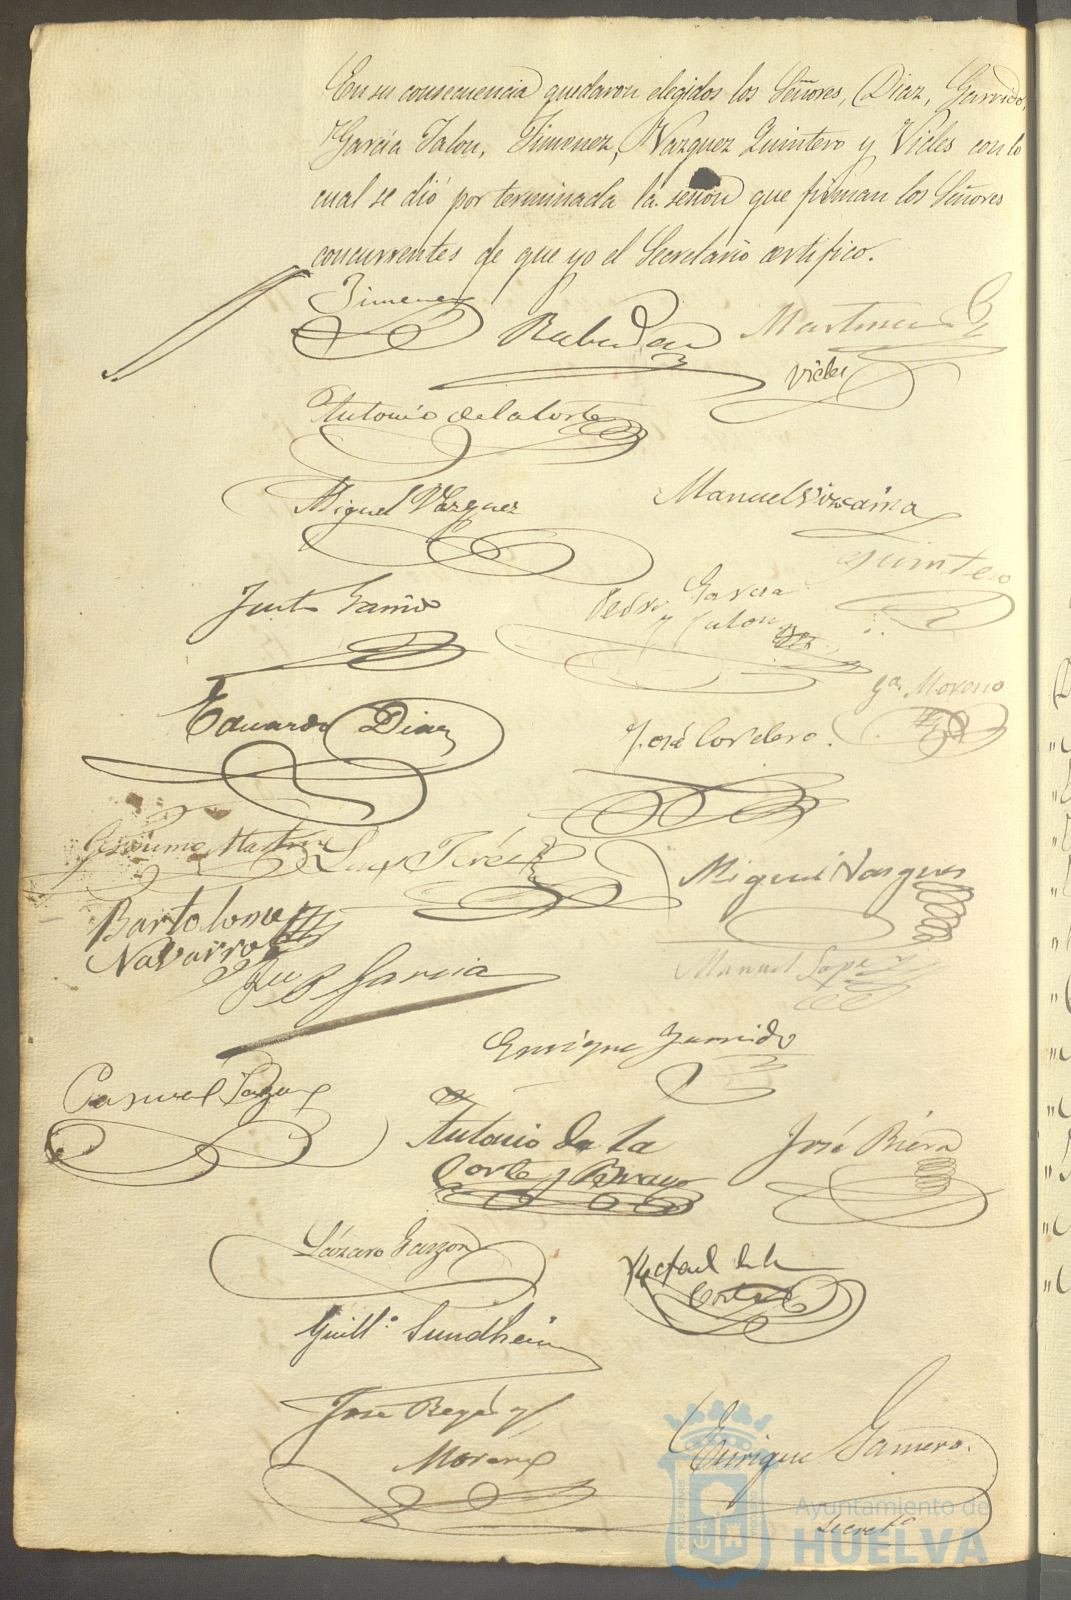 En su consecuencia quedaron elegidos los Señores, Diaz, Garrido,
Garcia Talon, Jimenez, Vazquez Quintero y Vides con lo
cual se dió por terminada la sesion que firman los Señores
concurrentes de que yo el Secretario certifico.
Jimenez
Rabadan
Martinez
Vides
Antonio de la Corte
Miguel Vazquez
Manuel Vizcaina
Quintero
Justo Garrido
Pedro Garcia
y Talon
Moreno
Eduardo Diaz
José Cordero.
Gerónimo Martin
Miguel Vazquez
Bartolome
Navarro
Garcia
Manuel Lopez
Enrique Garrido
Antonio de la
Corte y Bravo
José Riera
Lázaro Garzon
Rafael de la
Corte
Guillº Sundheim
José
Moreno
Enrique Gamero.
Secretº
Ayuntamiento de
HUELVA